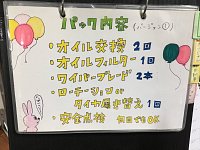 パック内容(バージョン①)
・オイル交換 2回
・オイルフィルター 1回
・ワイパーブレード 2本
・ローテーション or
タイヤ履き替え 1回
・安全点検 何回でもOK